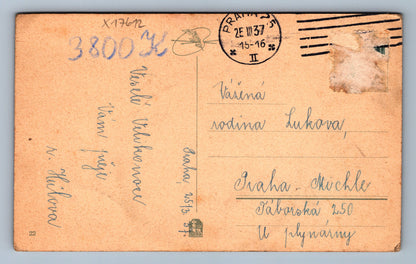 X 17612
3800 K
PRAHA 25
2E III 37
15-16
II
Veselé Velikonoce
Vám přeje
r. Hůlova
Praha, 25/3 37.
Vážená
rodina Lukova,
Praha-Michle
Táborská 250
U plynárny